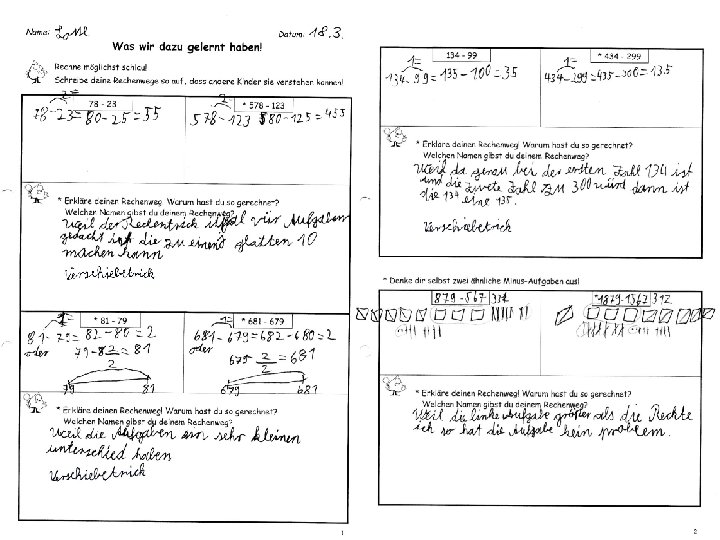 Name: Datum: 18.3.
Was wir dazu gelernt haben!
Rechne möglichst schlau!
Schreibe deine Rechenwege so auf, dass andere Kinder sie verstehen können!
78 - 23
78-23=80-25=55
* 578 - 123
578-123 580-125=455
* Erkläre deinen Rechenweg. Warum hast du so gerechnet?
Welchen Namen gibst du deinem Rechenweg?
Weil der Rechentrick für Aufgaben
gedacht ist die zu einem glatten 10
machen kann
Verschiebetrick
* 81 - 79
81-79=82-80=2
oder 79 81
2
79 81
* 681 - 679
681-679=682-680=2
oder 679 2 =681
2
679 681
* Erkläre deinen Rechenweg! Warum hast du so gerechnet?
Welchen Namen gibst du deinem Rechenweg?
Weil die Aufgaben sehr kleinen
unterschied haben
Verschiebetrick
1
134 - 99
1=
134-99=135-100=35
* 434 - 299
1=
434-299=435-300=135
* Erkläre deinen Rechenweg! Warum hast du so gerechnet?
Welchen Namen gibst du deinem Rechenweg?
Weil da genau bei der ersten Zahl 134 ist
und die zweite Zahl zu 300 wird dann ist
die 134 eine 135.
Verschiebetrick
* Denke dir selbst zwei ähnliche Minus-Aufgaben aus!
879-567 312
1879-1567 312
* Erkläre deinen Rechenweg! Warum hast du so gerechnet?
Welchen Namen gibst du deinem Rechenweg?
Weil die linke Aufgabe größer als die Rechte
ich so hat die Aufgabe kein problem.
2